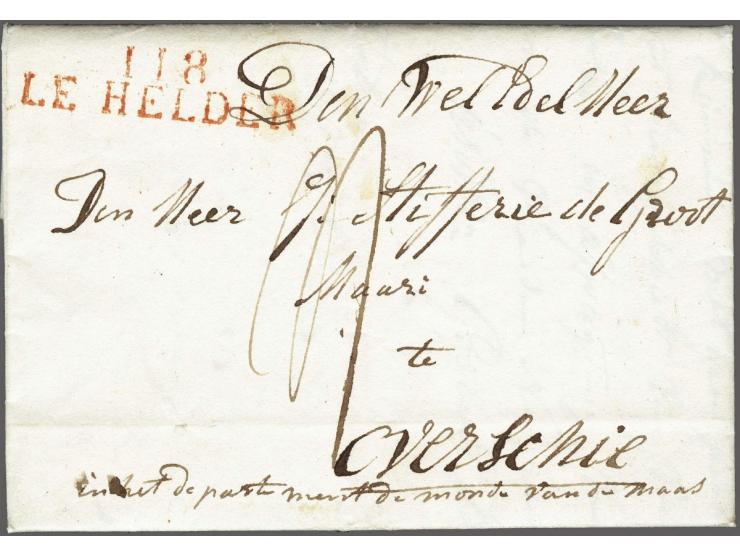 118
LE HELDER
Den Wel Edel Heer
Den Heer J: Stifferie de Groot
Maari
te
Overschie
in het departement de monde van de maas